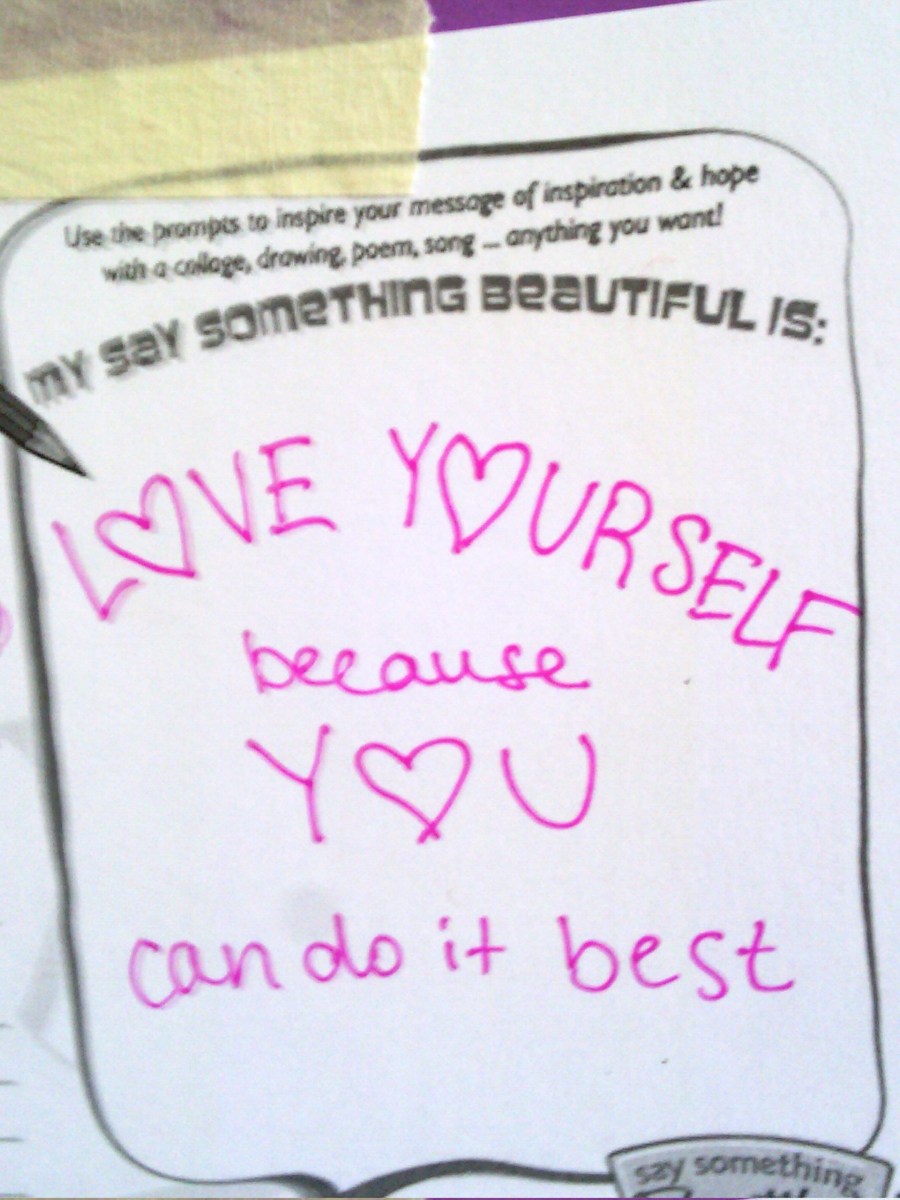 Use the prompts to inspire your message of inspiration & hope
with a collage, drawing, poem, song ... anything you want!
MY SAY SOMETHING BEAUTIFUL IS:
LOVE YOURSELF
because
YOU
can do it best
say something